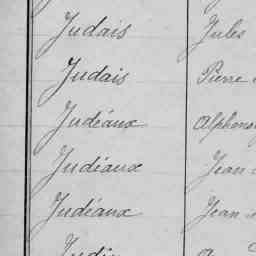 Judais Jules
Judais Pierre
Judéaux
Judéaux Jean
Judéaux Jean